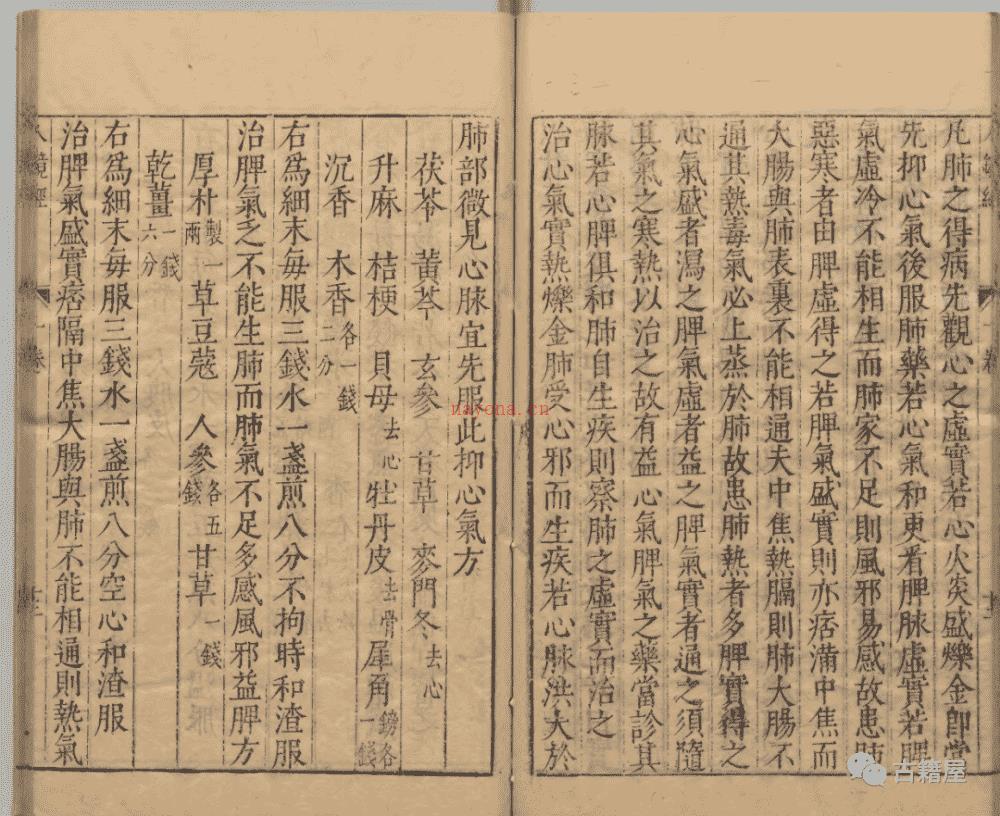 凡肺之得病先觀心之虛實若心火炎盛爍金卽當
先抑心氣後服肺藥若心氣和更看脾脉虛實若脾
氣虛冷不能相生而肺家不足則風邪易感故患肺
惡寒者由脾虛得之若脾氣盛實則亦痞滿中焦而
大腸與肺表裏不能相通夫中焦熱膈則肺大腸不
通其熱毒氣必上蒸於肺故患肺熱者多脾實得之
心氣盛者瀉之脾氣虛者益之脾氣實者通之須隨
其氣之寒熱以治之故有益心氣脾氣之藥當診其
脉若心脾俱和肺自生疾則察肺之虛實而治之
治心氣實熱爍金肺受心邪而生疾若心脉洪大於
肺部微見心脉宜先服此抑心氣方
茯苓 黃芩 玄參 甘草 麥門冬去心
升麻 桔梗 貝母去心 牡丹皮去骨 犀角鎊各一錢
沉香 木香各一錢二分
右爲細末每服三錢水一盞煎八分不拘時和渣服
治脾氣之不能生肺而肺氣不足多感風邪益脾方
厚朴製一兩 草豆蔻 人參各五錢 甘草一錢
乾薑一錢六分
右爲細末每服三錢水一盞煎八分空心和渣服
治脾氣盛實痞隔中焦大腸與肺不能相通則熱氣
鏡經
一卷
navona.cn
古籍屋